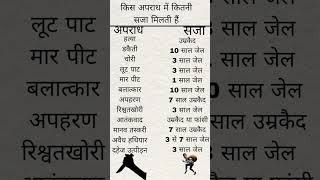 किस अपराध में कितनी
सजा मिलती हैं
अपराध सजा
हत्या उम्रकैद
डकैती 10 साल जेल
चोरी 3 साल जेल
लूट पाट 3 साल जेल
मार पीट 1 साल जेल
बलात्कार 10 साल जेल
अपहरण 7 साल उम्रकैद
रिश्वतखोरी 3 साल जेल
आतंकवाद उम्रकैद या फांसी
मानव तस्करी 7 साल उम्रकैद
अवैध हथियार 3 से 7 साल जेल
दहेज उत्पीड़न 3 साल जेल
लूट पाट
मार पीट
बलात्कार
अपहरण
रिश्वतखोरी
साल जेल
साल जेल
0 साल जेल
साल उम्रकैद
साल जेल